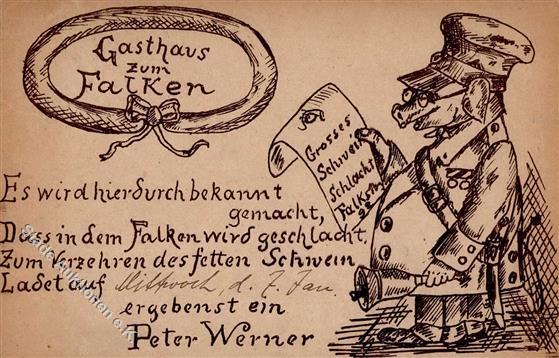 Gasthaus
zum
Falken
Grosses
Schwein
Schlacht
Es wird hierdurch bekannt
gemacht,
Dass in dem Falken wird geschlacht,
Zum Verzehren des fetten Schwein
Ladet auf Mittwoch, d. 7. Jan.
ergebenst ein
Peter Werner